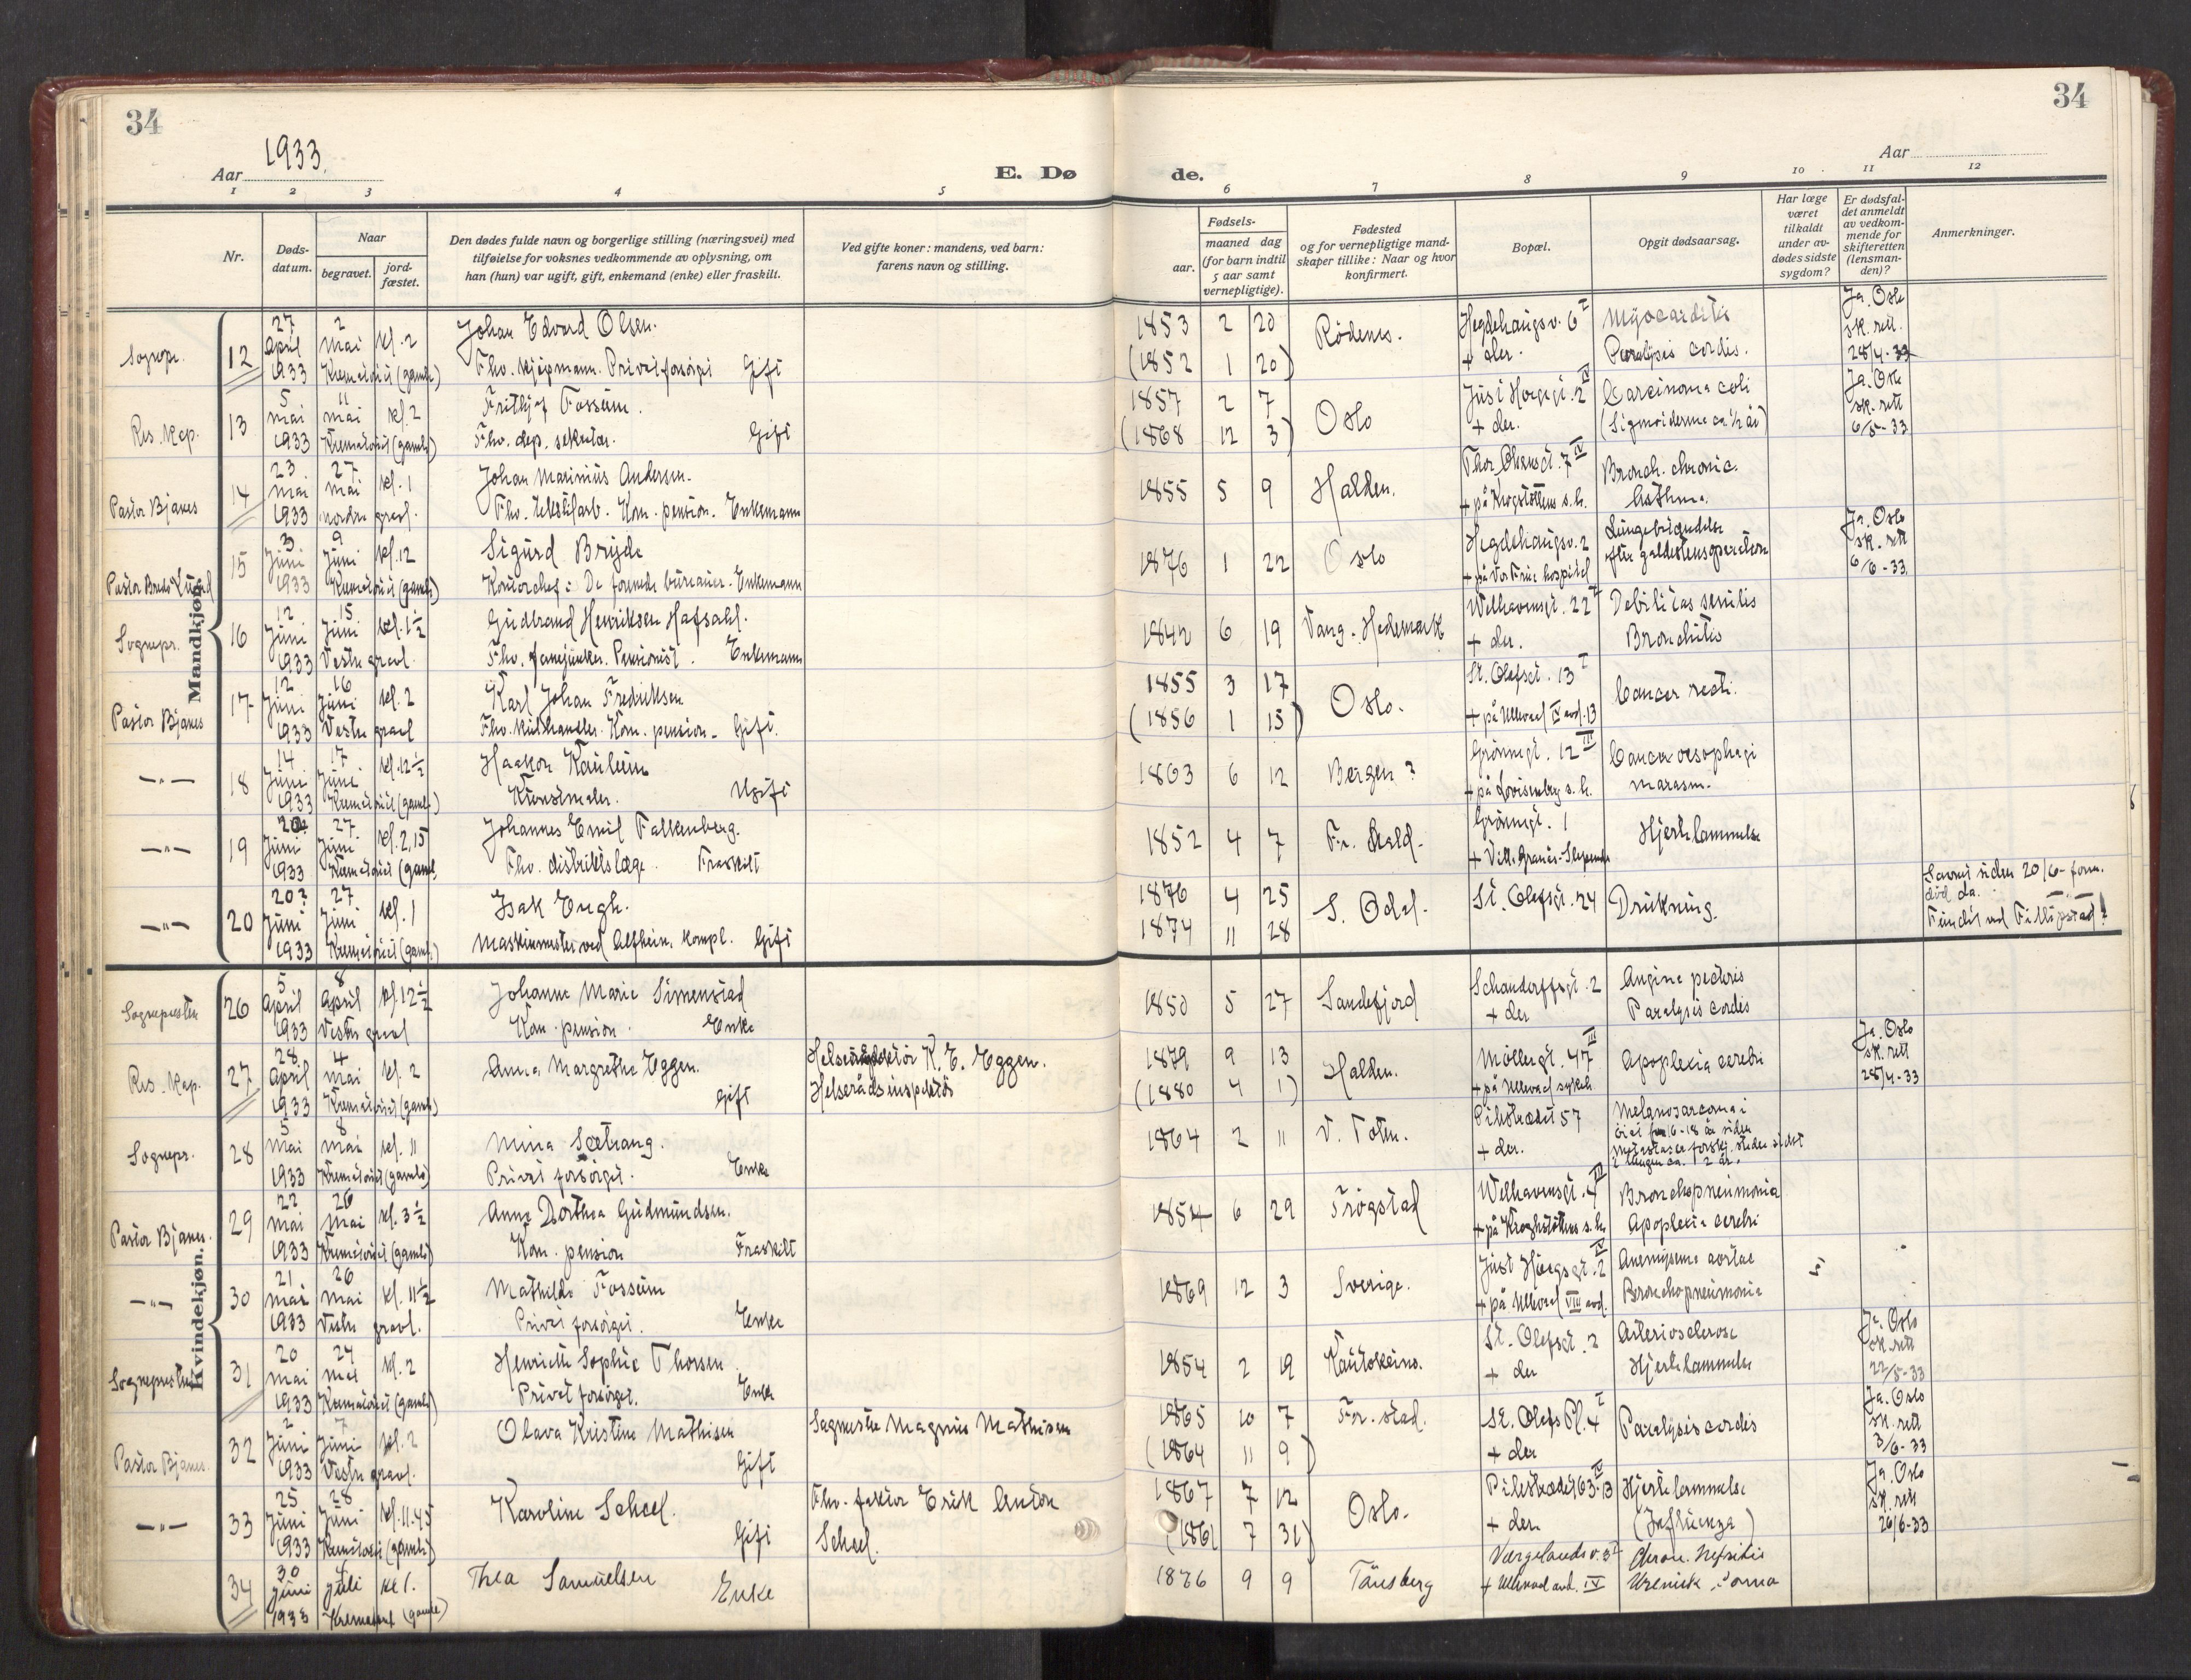 34
34
1933.
Aar
E. Dø
de.
Aar
1 2 3 4 5 6 7 8 9 10 11 12
Nr.
Døds-
datum.
Naar
begravet.
jord-
fæstet.
Den dødes fulde navn og borgerlige stilling (næringsvei) med
tilføielse for voksnes vedkommende av oplysning, om
han (hun) var ugift, gift, enkemand (enke) eller fraskilt.
Ved gifte koner: mandens, ved barn:
farens navn og stilling.
Fødsels-
aar.
maaned dag
(for barn indtil
5 aar samt
vernepligtige).
Fødested
og for vernepligtige mand-
skaper tillike: Naar og hvor
konfirmert.
Bopæl.
Opgit dødsaarsag.
Har læge
været
tilkaldt
under av-
dødes sidste
sygdom?
Er dødsfal-
det anmeldt
av vedkom-
mende for
skifteretten
(lensman-
den)?
Anmerkninger.
Mandkjøn.
Sognepr. 12 27 April 1933 2 Mai kl. 2 Krematoriet (gamle)
Johan Edvard Olsen.
Fhv. kjøpmann. Privat forsørget Gift
1853 2 20
(1852 1 20)
Rødenes.
Hegdehaugsv. 6 I
+ der.
Myocarditis
Paralysis cordis.
Ja. Oslo
sk. rett.
28/4-33
Res. kap. 13 5 mai 1933 11 mai kl. 2 Krematoriet (gamle)
Frithjof Fossum.
Fhv. dep. sekretær. Gift
1857 2 7
(1868 12 3)
Oslo
Just Høegsgt. 2 IV
+ der.
Carcinoma coli
(Sigmoideum ca ½ år)
Ja. Oslo
sk. rett
6/5-33
Pastor Bjanes 14 23 Mai 1933 27 mai kl. 1 nordre gravl.
Johan Marinius Andersen.
Fhv. tekstilarb. Kom. pension. Enkemann
1855 5 9
Halden.
Thor Olsensgt. 7 IV
+ på Krogstøttens s.h.
Bronch. chronic.
Asthma.
15 3 Juni 1933 9 Juni kl. 12 Krematoriet (gamle)
Sigurd Bryde
Kontorchef i De forenede bureauer. Enkemann
1876 1 22
Oslo
Hegdehaugsv. 2
+ på Vor Frue hospital
Lungebetændelse
efter galdestensoperation
Ja. Oslo
sk. rett
6/6-33
Sognepr. 16 12 Juni 1933 15 Juni kl. 1½ Vestre gravl.
Gudbrand Henriksen Hafsahl.
Fhv. fanejunker. Pensionist. Enkemann
1842 6 19
Vang. Hedemark
Welhavensgt. 22 I
+ der.
Debilitas senilis
Bronchitis
Pastor Bjanes 17 12 Juni 1933 16 Juni kl. 2 Vestre gravl
Karl Johan Fredriksen
Fhv. kulhandler. Kom. pension. Gift.
1855 3 17
(1856 1 15)
Oslo.
St. Olafsgt. 13 I
+ på Ullevaal IV avd. 13
Cancer recti.
—"— 18 14 Juni 1933 17 Juni kl. 12½ Krematoriet (gamle)
Haakon Kaulum
Kunstmaler. Ugift
1863 6 12
Bergen?
Grønnegt. 12 III
+ på Lovisenberg s.h.
Cancer oesophagi
marasm.
—"— 19 Juni 1933 27 Juni kl. 2,15 Krematoriet (gamle)
Johannes Emil Falkenberg.
Fhv. distriktslæge. Fraskilt
1852 4 7
Fr. hald.
Grønnegt. 1
Hjertelammelse
—"— 20 20? Juni 1933 27 Juni kl. 1 Krematoriet (gamle)
Isak Engh.
Maskinmester ved Alfheim kompl. Gift
1876 4 25
1874 11 28
S. Odal.
St. Olafsgt. 24
Drukning.
Savnet siden 20/6 - form.
død da.
Fundet ved Filipstad!
Kvindekjøn.
Sognepresten 26 5 April 1933 8 April kl. 12½ Vestre gravl
Johanne Marie Simenstad
Kom. pension. Enke
1850 5 27
Sandefjord
+ der
Angina pectoris
Paralysis cordis
Res. kap. 27 28 April 1933 4 Mai kl. 2 Krematoriet (gamle)
Anna Margrethe Eggen.
Gift
K. E. Eggen.
Helserådsinspektør
1879 9 13
(1880 4 1)
Halden.
Møllergt. 47 III
+ på Ullevaal sykeh.
Apoplexia cerebri
Ja. Oslo
sk. rett
28/4-33
Sognepr. 28 5 Mai 1933 8 mai kl. 11 Krematoriet (gamle)
Mina Sætrang.
Privat forsørget. Enke
1864 2 11
V. Toten.
Pilestrædet 57
+ der.
Melanosarcoma i
16-18 år siden
metastaser forskj. steder sidst
i lungen ca. 2 år.
Pastor Bjanes. 29 22 Mai 1933 26 Mai kl. 3½ Krematoriet (gamle)
Anne Dorthea Gudmundsen.
Kom. pension Fraskilt
1854 6 29
Trøgstad
Welhavensgt. 4 IV
+ på Kroghstøttens s.h.
Bronchopneumonia
Apoplexia cerebri
—"— 30 21 mai 1933 26 Mai kl. 11½ Vestre gravl.
Mathilde Fossum
Privat forsørget. Enke
1869 12 3
Sverige.
Just Høegsgt. 2 IV
+ på Ullevaal VIII avd.
Aneurysma aortae
Bronchopneumonia
Sognepresten 31 20 mai 1933 24 mai kl. 2 Krematoriet (gamle)
Henriette Sophie Thorsen
Privat forsørget. Enke
1854 2 19
Kautokeino.
St. Olafsgt. 2
+ der
Arteriosclerose
Hjertelammelse
Ja. Oslo
sk. rett
22/5-33
Pastor Bjanes. 32 2 Juni 1933 7 Juni kl. 2 Vestre gravl.
Olava Kristine Mathisen
Gift
Sagmester Magnus Mathisen
1865 10 7
(1864 11 9)
Fr. stad.
St. Olafs Pl. 4 I
+ der
Paralysis cordis
Ja. Oslo
sk. rett
3/6-33
—"— 33 25 Juni 1933 28 Juni kl. 11.45 Krematoriet (gamle)
Karoline Scheel.
Gift
Fhv. faktor Erik Anton
Scheel.
1867 7 12
(1861 7 31)
Oslo.
Pilestrædet 63
+ der.
Hjertelammelse
(Influenza)
Ja. Oslo
sk. rett
26/6-33
34 30 Juni 1933 4 Juli kl 1. (gamle)
Thea Samuelsen
Enke
1876 9 9
Tønsberg
+ Ullevaal avd. IV
Chron. Nefritis
Uremisk Coma